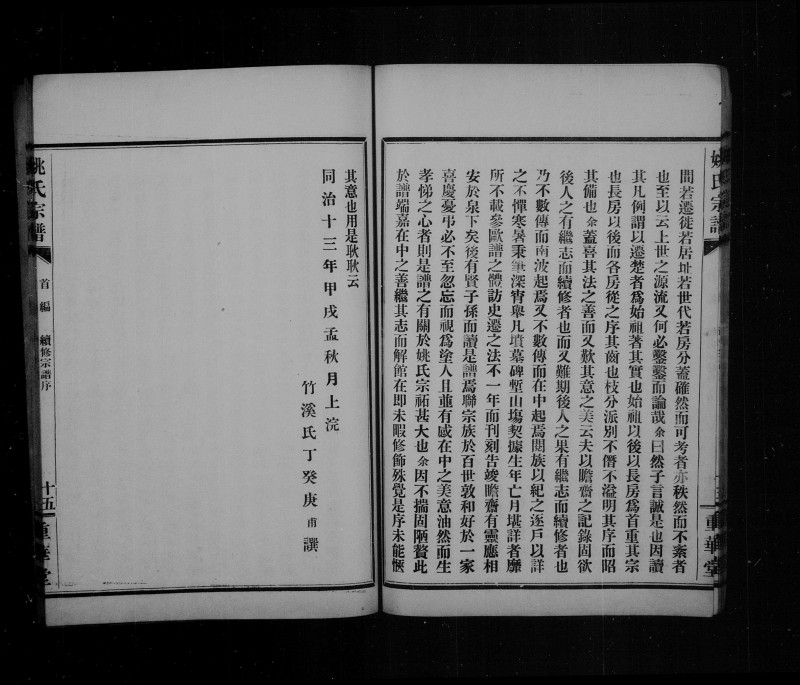 姚氏宗譜
間若遷徙若居址若世代若房分蓋確然而可考者亦秩然而不紊者
也至以云上世之源流又何必鑿鑿而論哉余曰然子言誠是也因讀
其凡例謂以遷楚者為始祖著其實也始祖以後以長房為首重其宗
也長房以後而各房從之序其齒也枝分派別不僭不溢明其序而昭
其備也余蓋喜其法之善而又歎其意之美云夫以瞻齋之記錄固欲
後人之有繼志而續修者也而又難期後人之果有繼志而續修者也
乃不數傳而南波起焉又不數傳而在中起焉閤族以紀之逐戶以詳
之不憚寒暑秉筆深宵舉凡墳墓碑塹山塲契據生年亡月堪詳者靡
所不載參歐譜之體訪史遷之法不一年而刊刻告竣瞻齋有靈應相
安於泉下矣後有賢子孫而讀是譜焉聯宗族於百世敦和好於一家
喜慶憂弔必不至忽忘而視為塗人且並有感在中之美意油然而生
孝悌之心者則是譜之有關於姚氏宗祏甚大也余因不揣固陋贅此
於譜端嘉在中之善繼其志而解館在即未暇修飾殊覺是序未能愜
重華堂
其意也用是耿耿云
同治十三年甲戌孟秋月上浣
竹溪氏丁癸庚甫譔
姚氏宗譜
首編
續修宗譜序
十五
重華堂